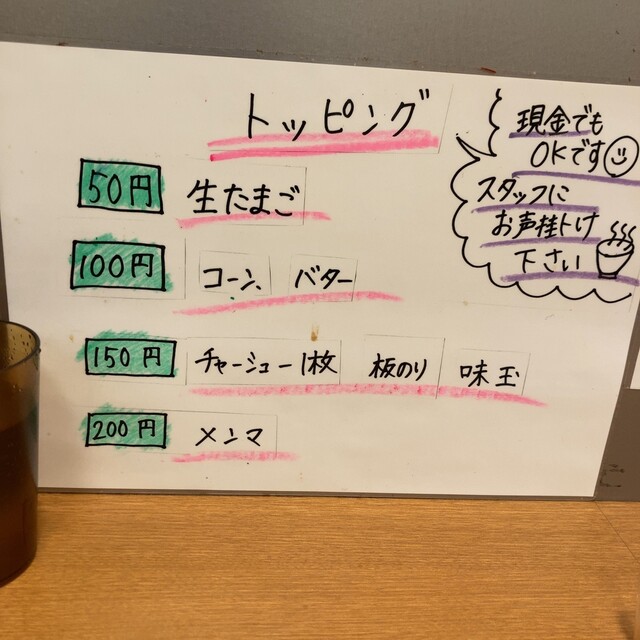 トッピング
50円 生たまご
100円 コーン、バター
150円 チャーシュー1枚 板のり 味玉
200円 メンマ
現金でも
OKです
スタッフに
お声掛け
下さい